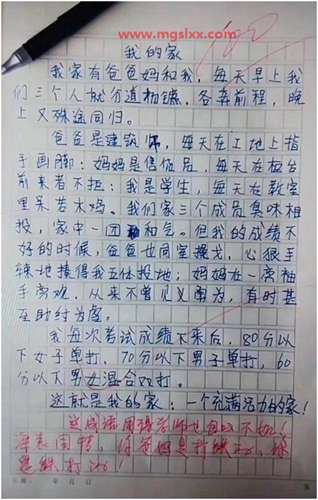 www.mgslxx.com
我的家
我家有爸爸妈和我，每天早上我
们三个人就分道扬镳，各奔前程，晚
上又殊途同归。
爸爸是建筑师，每天在工地上指
手画脚；妈妈是售货品，每天在柜台
前来者不拒；我是学生，每天在教室
里呆若木鸡。我们家三个成员臭味相
投，家中一团和气。但我的成绩不
好的时候，爸爸也同室操戈，心狠手
辣地揍得我五体投地；妈妈在一旁袖
手旁观，从来不曾见义勇为，有时甚
至助纣为虐。
我每次考试成绩下来后，80分以
下女子单打，70分以下男子单打，60
分以下男女混合双打。
这就是我的家：一个充满活力的家！
这成语用得